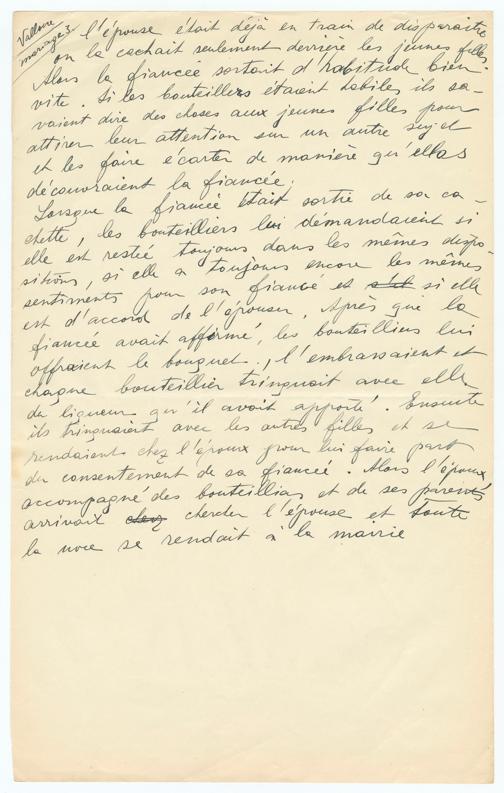 Valloire
mariage 3.
l'épouse était déjà en train de disparaître
on la cachait seulement derrière les jeunes filles.
Alors la fiancée sortait d'habitude bien
vite. Si les bouteillers étaient habiles ils sa-
vaient dire des choses aux jeunes filles pour
attirer leur attention sur un autre sujet
et les faire écarter de manière qu'elles
découvraient la fiancée.
Lorsque la fiancé était sortie de sa ca-
chette, les bouteilliers lui démandaient si
elle est restié toujours dans les mêmes dispo-
sitions, si elle a toujours encore les mêmes
sentiments pour son fiancé et si elle
est d'accord de l'épouser. Après que la
fiancée avait affirmé, les bouteilliers lui
offraient le bouquet, l'embrassaient et
chaque bouteillier tringuait avec elle
de liqueur qu'il avait apporté. Ensuite
ils tringuaient avec les autres filles et se
rendaient chez l'époux pour lui faire part
du consentement de sa fianceé. Alors l'époux
accompagné des bouteillias et de ses parents
arrivait chez chercher l'épouse et toute
la noce se rendait à la mairie